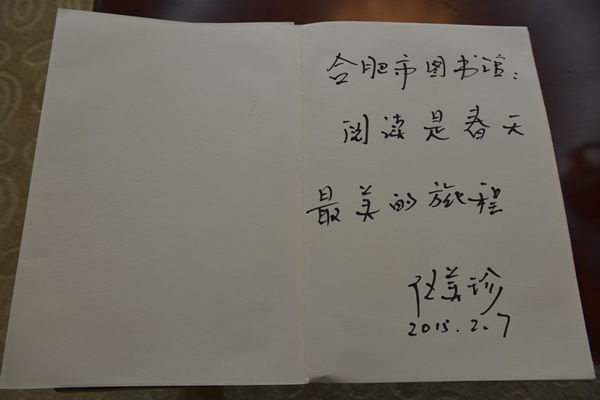 合肥市图书馆：
阅读是春天
最美的旅程
伍美珍
2015.2.7